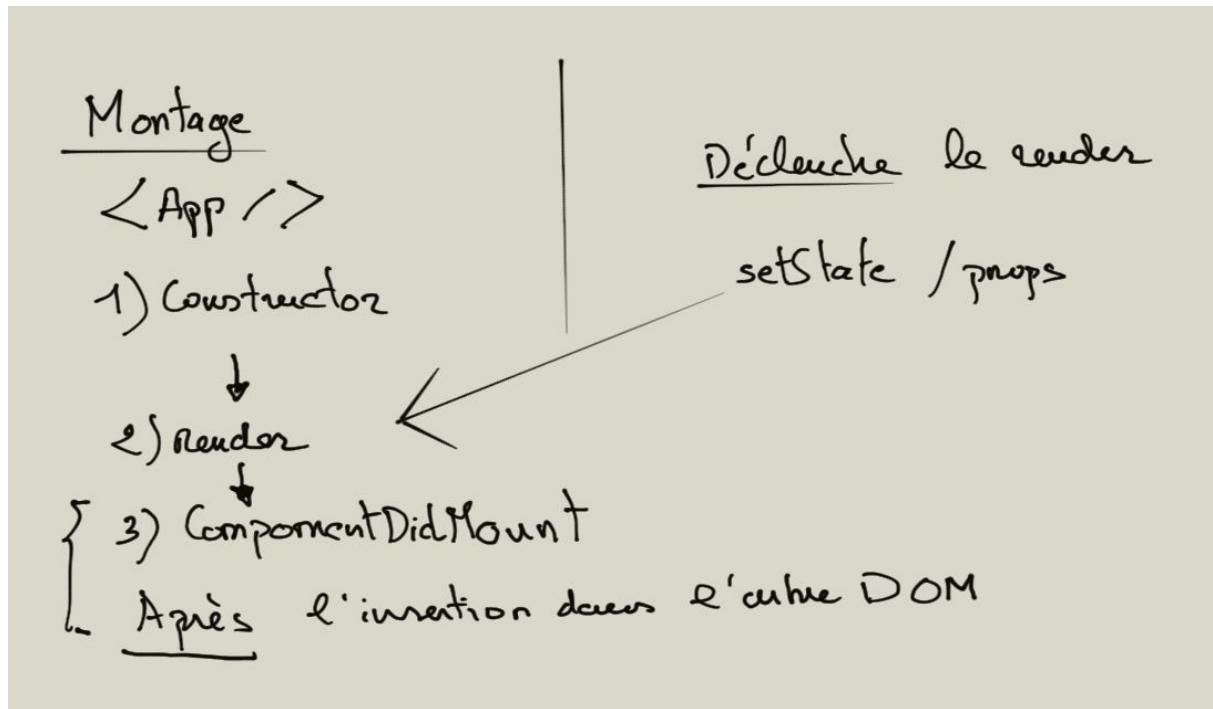 Montage
<App />
1) Constructor
2) Render
3) ComponentDidMount
Après l'insertion dans l'arbre DOM
Déclenche le render
setState / props